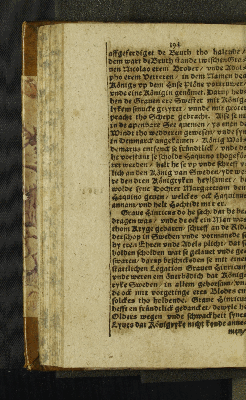 194
affgeferdiget de Bruth tho halende /
dem wart de Bruth
nen Nicolas erem Broder / vnde
pho erem Vetteren / in dem Namen des
Königs vp dem Huse Plöne vortruwet /
vnde eine Königin genömet. Darup hebben
den de Grauen ere Swester mit Königs
lykem smucke gezyret / vnnde mit groter
pracht tho Schepe gebracht. Alse se nu
in de apenbare See quemen / vn eman de
Windt tho wedderen gewesen / vnde se
in Dennmarck angekamen / König Wol
demarus entfenck se fründtlick / vnde
he worstunt se scholde Haquino thogeföret
werden / halt he se vp vnde schreff
lick an den König van Sweden /
re den dren Königryken heylsamer /
wolde syne Dochter Margaretam dem
Haquino geuen / welckes ock Haquinus
annam / vnd helt Hochtidt mit er.
Graue Hinricus do he sach dat he be-
dragen was / vnde de ock ein Man was
thom Kryge gebaren / schreff an de Ridd
derschop in Sweden vnde vormande se
by eren Ehren vnde Adels plicht / dat se
holden scholden wat se gelauet vnde ge-
swaren / darup beschickeden se mit einer
statliken Legation Grauen Hinricum /
vnde weren em Gerbädich dat König-
ryke Sweden / in allem gehorsam / vn-
de ock mit vorgetinge eres Blodes en
solckes tho holdende. Graue Hinricus
hefft en fründtlick gedancket / dewyle he
Olders wegen vnde schwackheit synes
Lyues dat Königryke nicht kunde anne-
men /